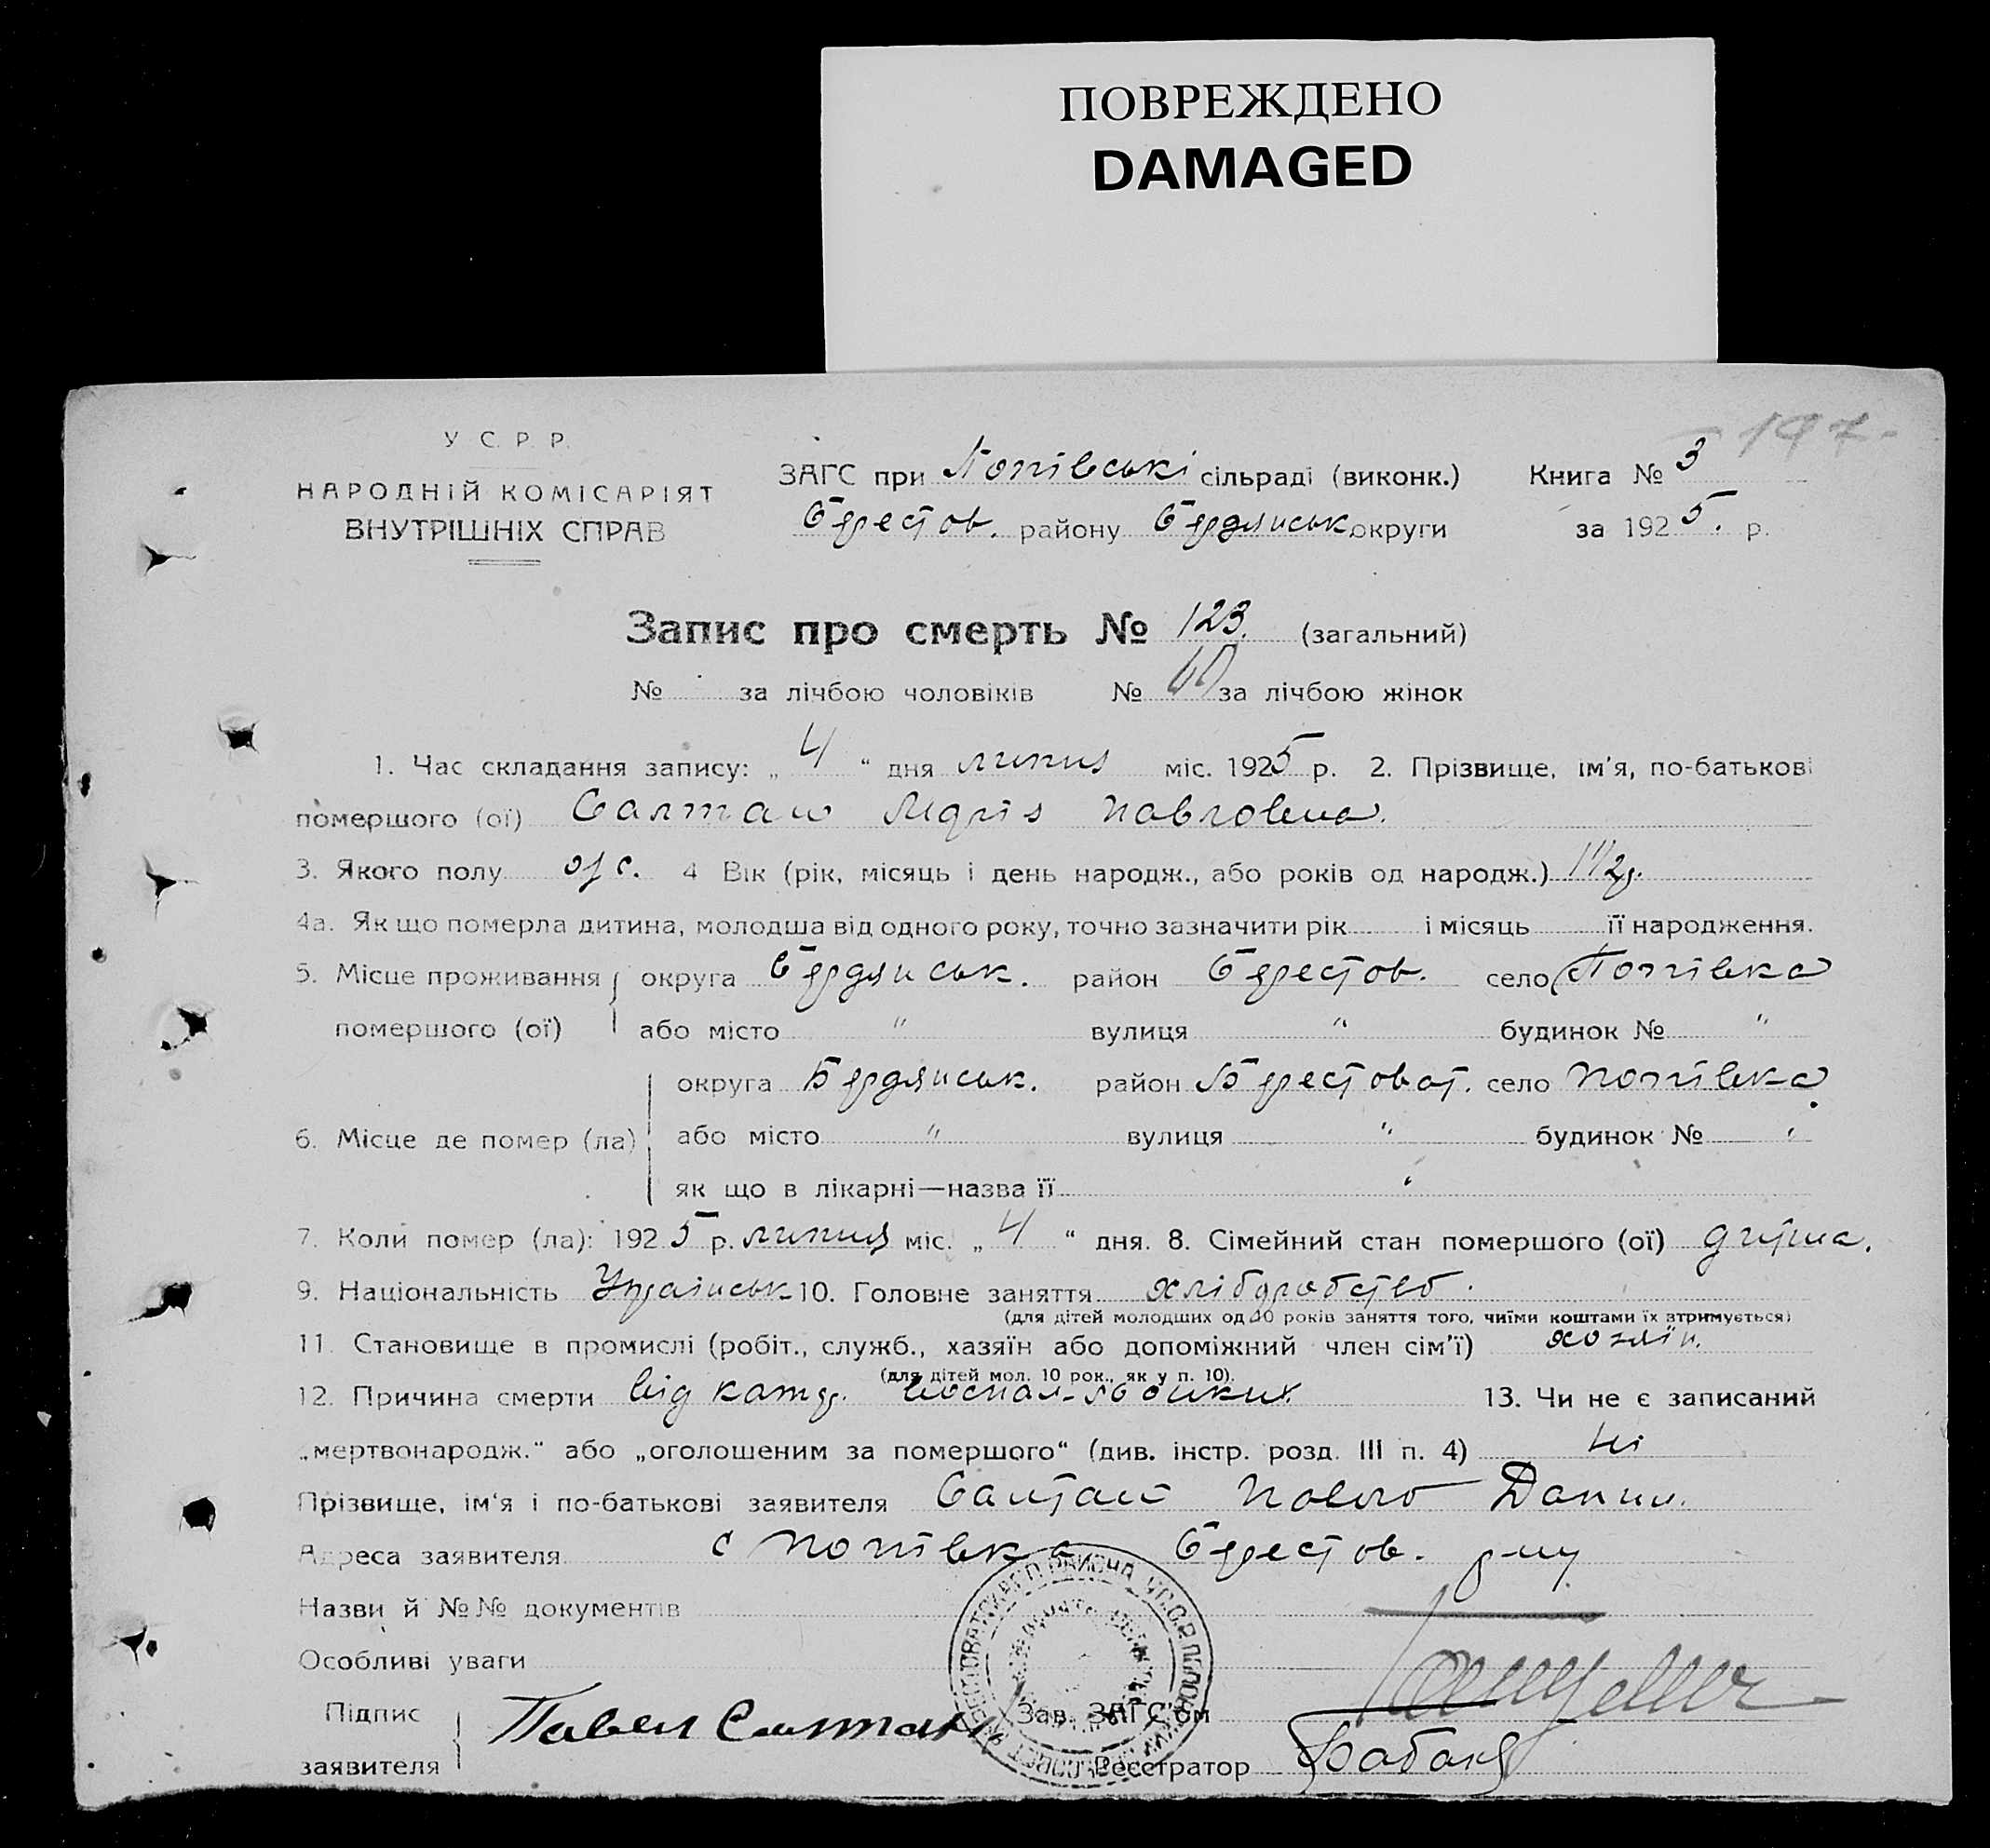 ПОВРЕЖДЕНО
DAMAGED
197.
У С. Р. Р.
НАРОДНІЙ КОМІСАРІЯТ
ВНУТРІШНІХ СПРАВ
ЗАГС при Попівські сільраді (виконк.) Книга № 3
Берестов. району Бердянськ округи за 1925. р.
Запис про смерть № 123. (загальний)
№ за лічбою чоловіків № 60 за лічбою жінок
1. Час складання запису: „ 4 “ дня липня міс. 1925 р. 2. Прізвище, ім'я, по-батькові
помершого (ої) Салтан Марія Павловна.
3. Якого полу ж. 4 Вік (рік, місяць і день народж., або років од народж.) 1 1/2 р.
4а. Як що померла дитина, молодша від одного року, точно зазначити рік і місяць її народження.
5. Місце проживання округа Бердянськ. район Берестов. село Попівка
помершого (ої) або місто " вулиця " будинок № "
округа Бердянськ. район Берестоват. село Попівка
6. Місце де помер (ла) або місто " вулиця " будинок № "
як що в лікарні—назва її "
7. Коли помер (ла): 1925 р. липня міс. „ 4 “ дня. 8. Сімейний стан помершого (ої) дитина.
9. Національність Українськ 10. Головне заняття хліборобство.
(для дітей молодших од 10 років заняття того, чиїми коштами їх втримується)
11. Становище в промислі (робіт., служб., хазяїн або допоміжний член сім'ї) хозяїн.
(для дітей мол. 10 рок., як у п. 10).
12. Причина смерти від катар. 13. Чи не є записаний
„мертвонародж.“ або „оголошеним за помершого“ (див. інстр. розд. III п. 4) ні
Прізвище, ім'я і по-батькові заявителя Салтан Павло Данил.
Адреса заявителя с Попівка Берестов. р-ну
Назви й №№ документів
Особливі уваги
Підпис
заявителя Павел Салтан
Зав. ЗАГС'ом
Реєстратор